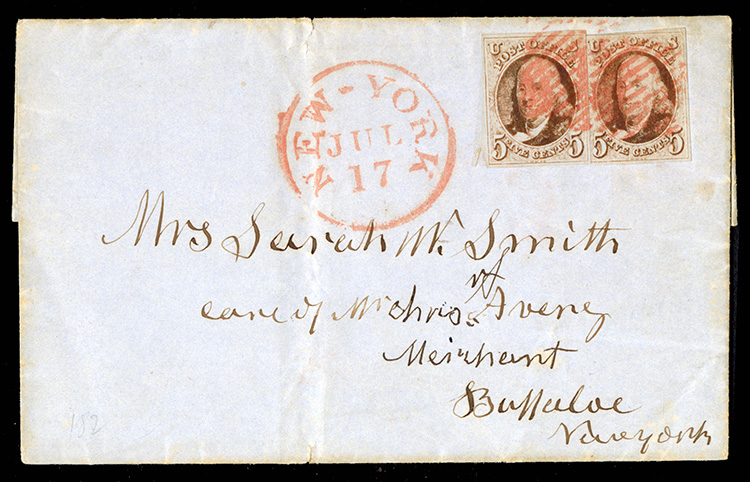 U S U S
POST OFFICE POST OFFICE
5 FIVE CENTS 5 5 FIVE CENTS 5
NEW-YORK
JUL
17
Mrs Sarah W. Smith
care of Mr Avery
Merchant
Buffaloe
Newyork
152